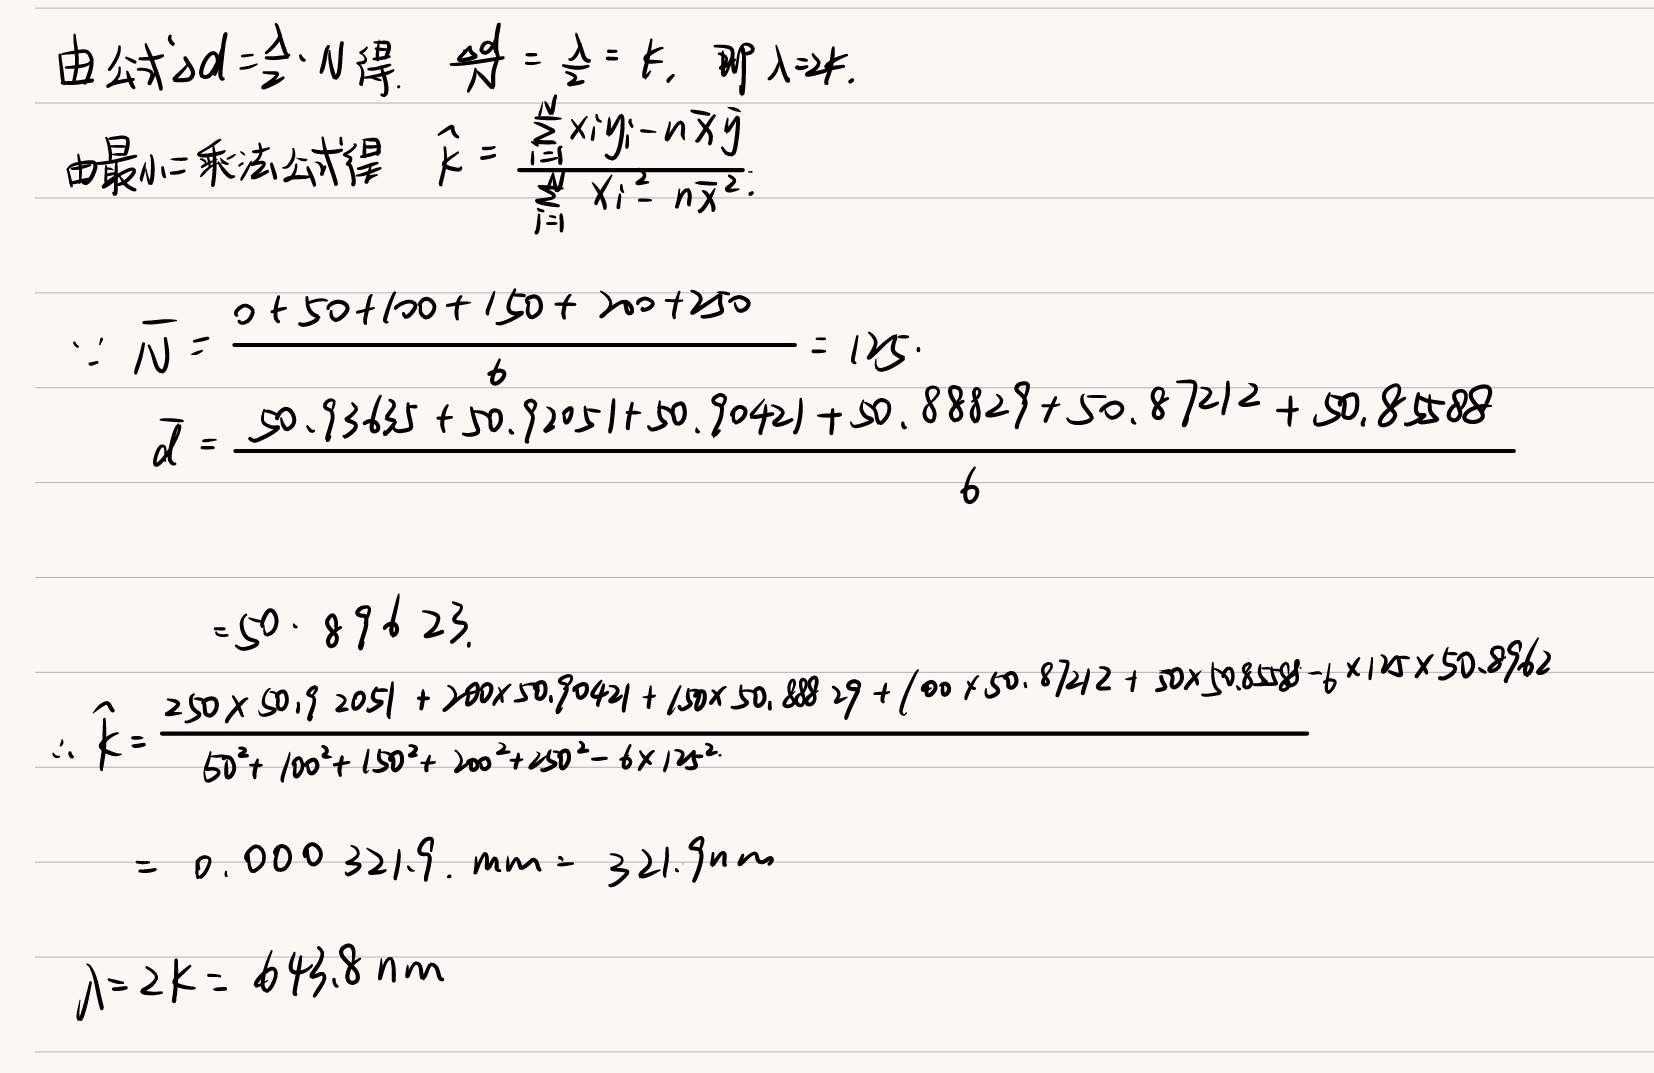 由公式Δd=λ/2·N得. Δd/N = λ/2 = k, 即 λ=2k.
由最小二乘法公式得 k̂ = (∑_{i=1}^{N} xiyi - n x̄ȳ) / (∑_{i=1}^{N} xi² - n x̄²).
∵ N̄ = (0+50+100+150+200+250) / 6 = 125.
d̄ = (50.93635+50.92051+50.90421+50.88829+50.87212+50.85588) / 6
=50.89623.
∴ k̂ = (250×50.92051+200×50.90421+150×50.88829+100×50.87212+50×50.85588-6×125×50.8962) / (50²+100²+150²+200²+250²-6×125².)
= 0.000321.9. mm = 321.9nm
λ=2k= 643.8nm